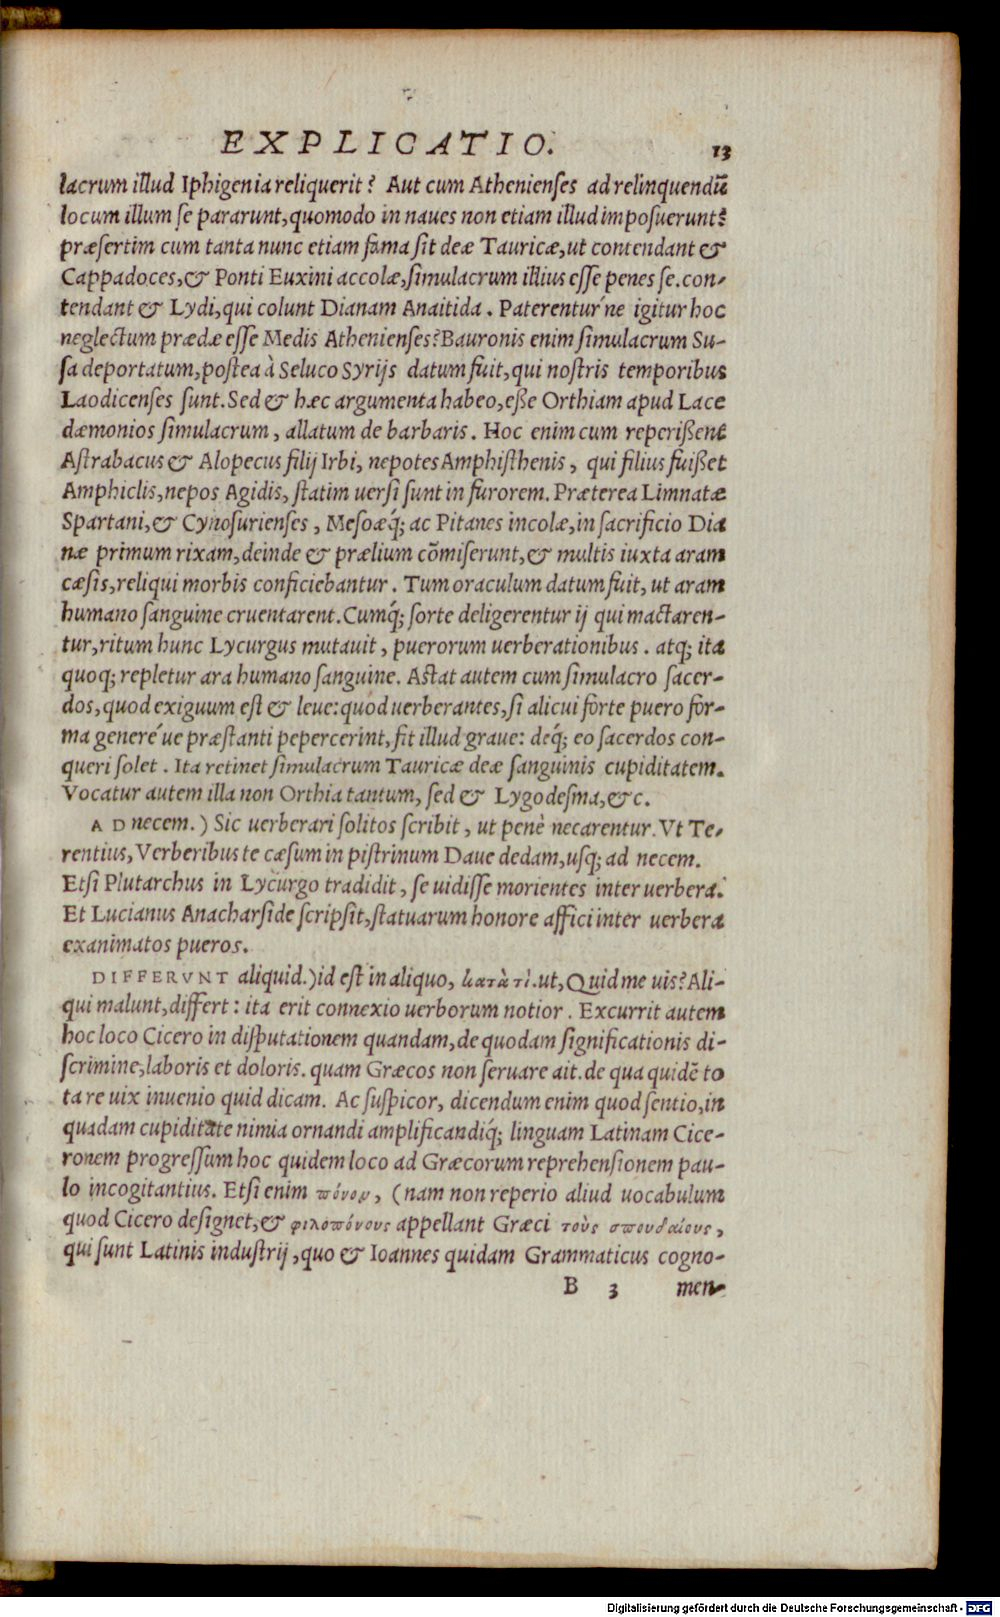 EXPLICATIO. 13
lacrum illud Iphigenia reliquerit? Aut cum Athenienses ad relinquendũ
locum illum se pararunt, quomodo in naues non etiam illud imposuerunt?
præsertim cum tanta nunc etiam fama sit deæ Tauricæ, ut contendant &
Cappadoces, & Ponti Euxini accolæ, simulacrum illius esse penes se. con-
tendant & Lydi, qui colunt Dianam Anaitida. Paterentur ne igitur hoc
neglectum prædæ esse Medis Athenienses? Bauronis enim simulacrum Su-
sa deportatum, postea à Seluco Syrijs datum fuit, qui nostris temporibus
Laodicenses sunt. Sed & hæc argumenta habeo, eße Orthiam apud Lace
dæmonios simulacrum, allatum de barbaris. Hoc enim cum reperißent
Astrabacus & Alopecus filij Irbi, nepotes Amphisthenis, qui filius fuißet
Amphiclis, nepos Agidis, statim uersi sunt in furorem. Præterea Limnatæ
Spartani, & Cynosurienses, Mesoæq́; ac Pitanes incolæ, in sacrificio Dia
næ primum rixam, deinde & prælium cõmiserunt, & multis iuxta aram
cæsis, reliqui morbis conficiebantur. Tum oraculum datum fuit, ut aram
humano sanguine cruentarent. Cumq́; sorte deligerentur ij qui mactaren-
tur, ritum hunc Lycurgus mutauit, puerorum uerberationibus. atq; ita
quoq; repletur ara humano sanguine. Astat autem cum simulacro sacer-
dos, quod exiguum est & leue: quod uerberantes, si alicui forte puero for-
ma genere´ue præstanti pepercerint, fit illud graue: deq́; eo sacerdos con-
queri solet. Ita retinet simulacrum Tauricæ deæ sanguinis cupiditatem.
Vocatur autem illa non Orthia tantum, sed & Lygodesma, &c.
AD necem.) Sic uerberari solitos scribit, ut penè necarentur. Vt Te-
rentius, Verberibus te cæsum in pistrinum Daue dedam, usq; ad necem.
Etsi Plutarchus in Lycurgo tradidit, se uidisse morientes inter uerbera.
Et Lucianus Anacharside scripsit, statuarum honore affici inter uerbera
exanimatos pueros.
DIFFERVNT aliquid.) id est in aliquo, κατὰ τὶ. ut, Quid me uis? Ali-
qui malunt, differt: ita erit connexio uerborum notior. Excurrit autem
hoc loco Cicero in disputationem quandam, de quodam significationis di-
scrimine, laboris et doloris. quam Græcos non seruare ait. de qua quidẽ to
ta re uix inuenio quid dicam. Ac suspicor, dicendum enim quod sentio, in
quadam cupiditate nimia ornandi amplificandiq́; linguam Latinam Cice-
ronem progressum hoc quidem loco ad Græcorum reprehensionem pau-
lo incogitantius. Etsi enim πόνον, (nam non reperio aliud uocabulum
quod Cicero designet, & φιλοπόνους appellant Græci τοὺς σπουδαίους,
qui sunt Latinis industrij, quo & Ioannes quidam Grammaticus cogno-
B 3 men-
Digitalisierung gefördert durch die Deutsche Forschungsgemeinschaft - DFG